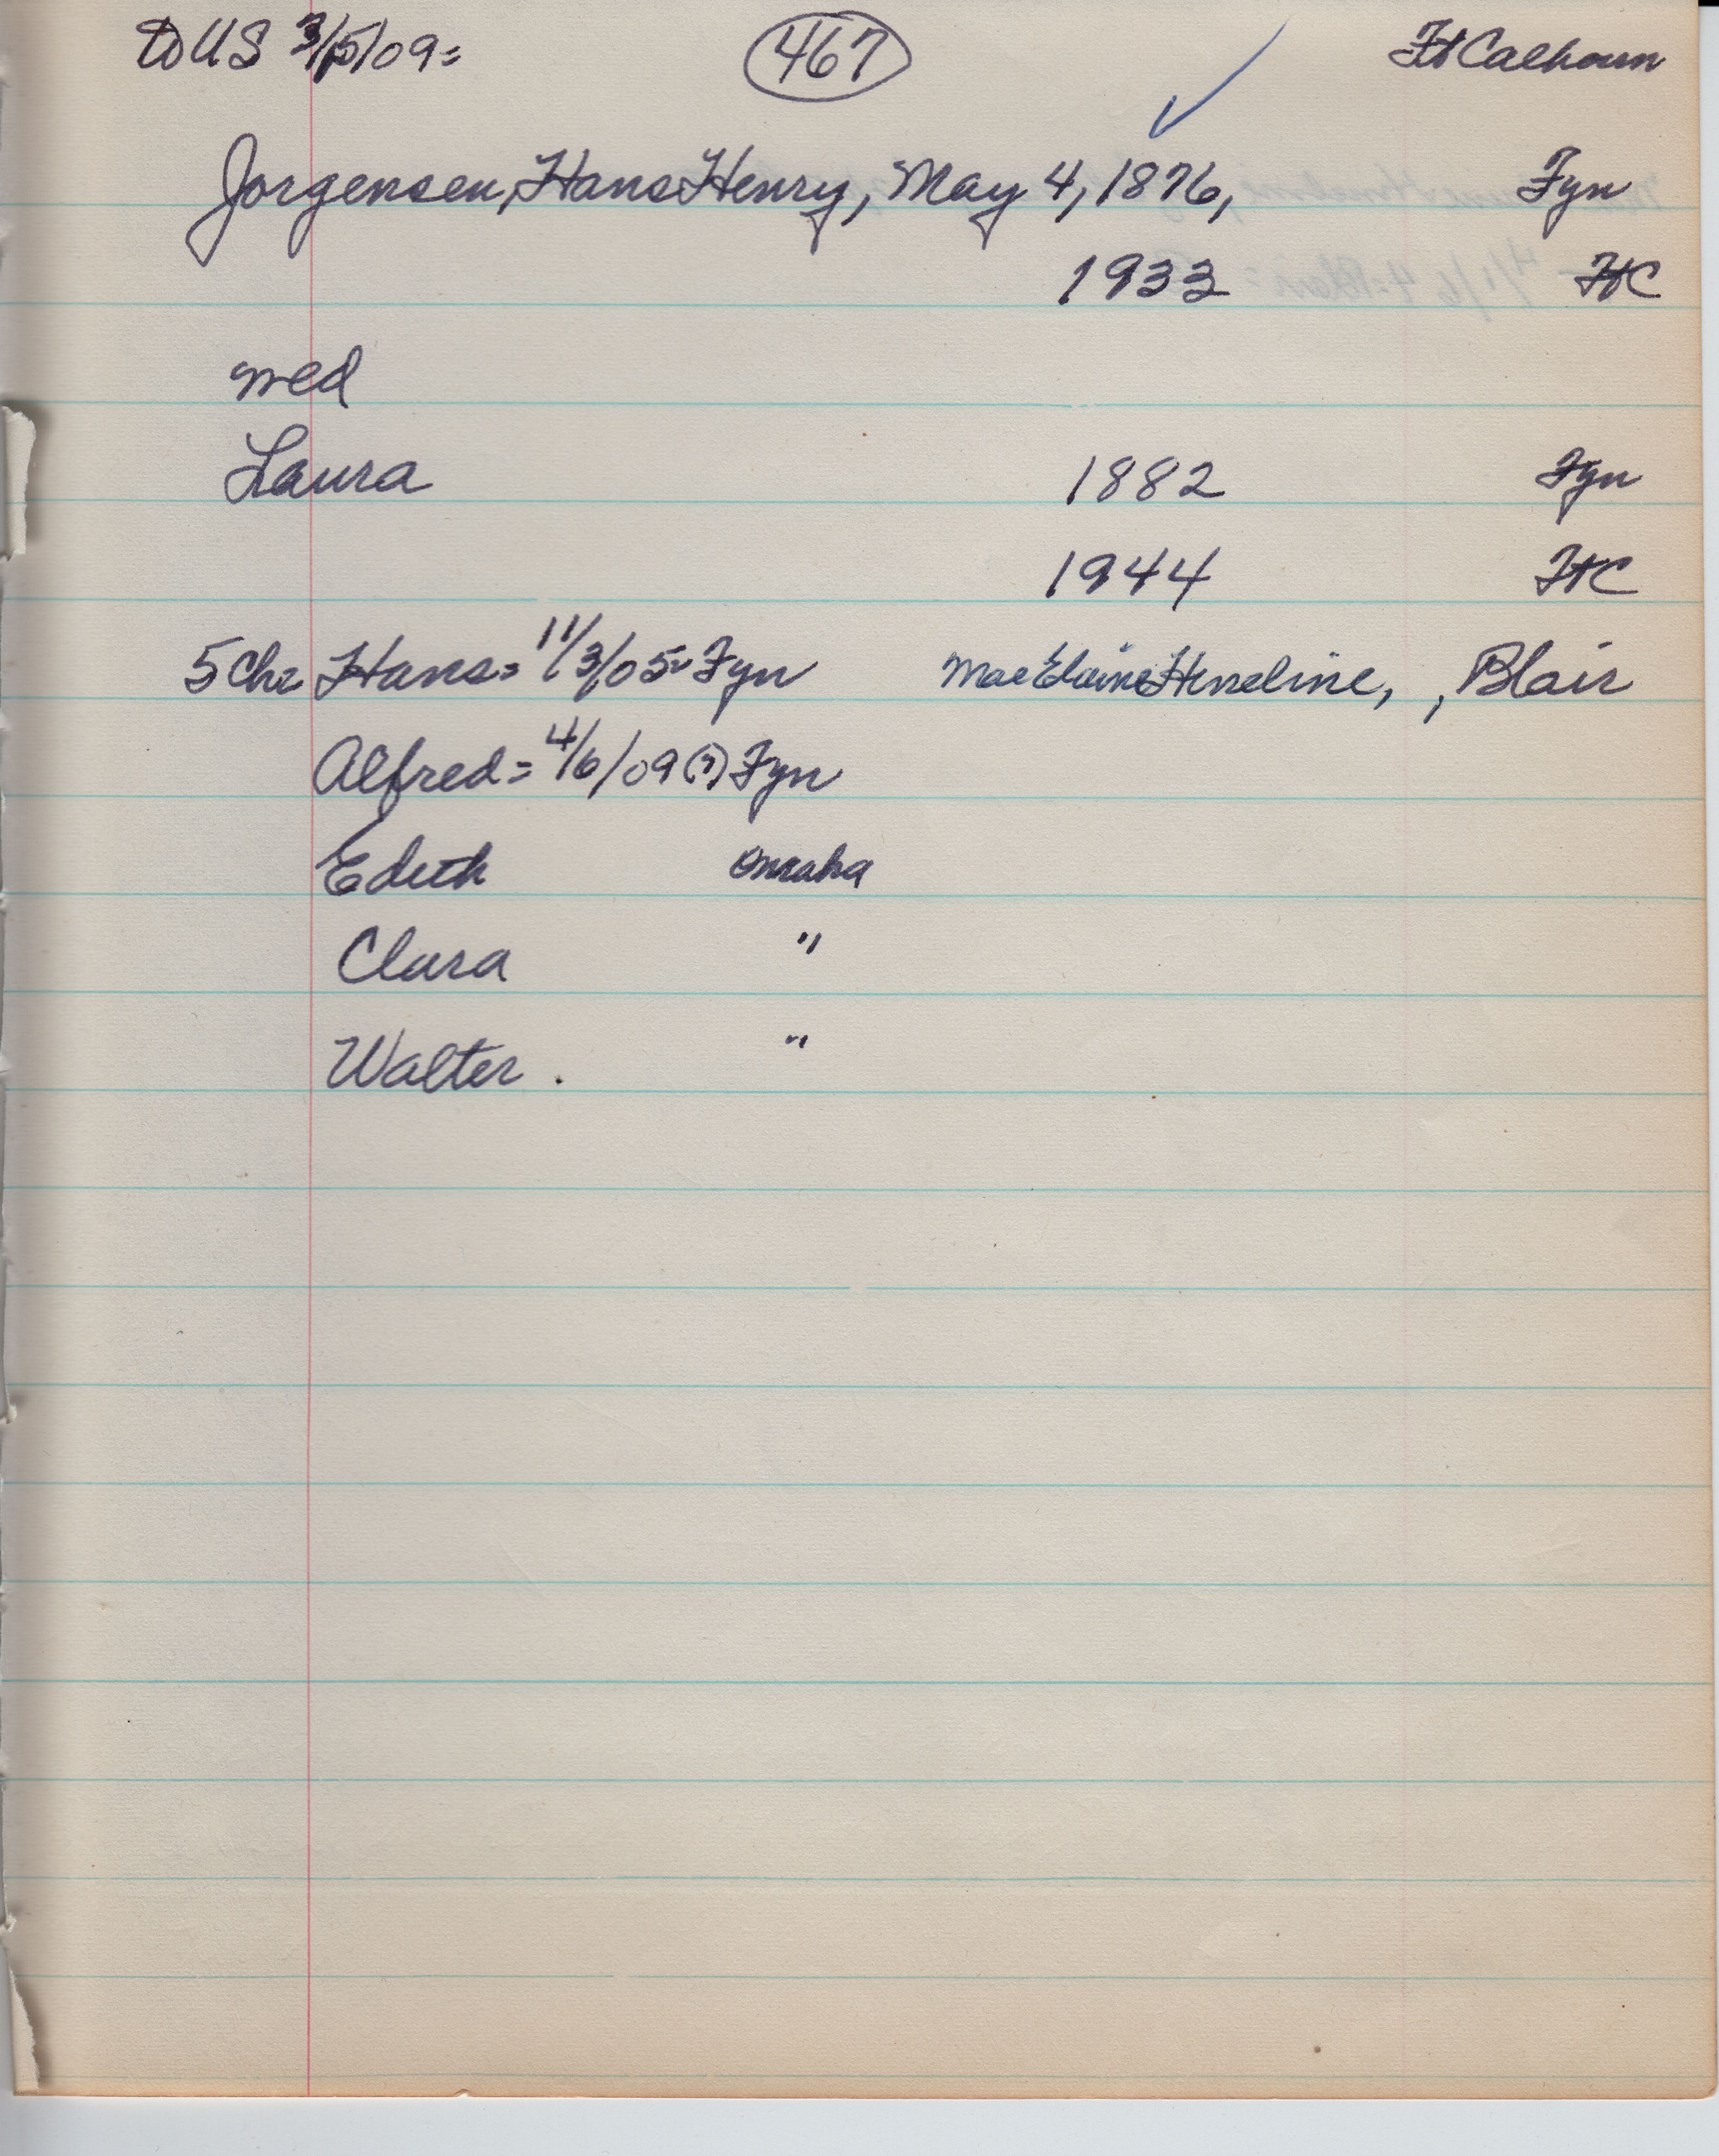 to US 3/15/09= 467 Ft Calhoun
Jorgensen, Hans Henry, May 4, 1876, Fyn
1933 FtC
med
Laura 1882 Fyn
1944 FtC
5 Ch= Hans= 11/3/05= Fyn Mae Elaine Heneline, , Blair
Alfred= 4/6/09 (?) Fyn
Edith Omaha
Clara "
Walter . "